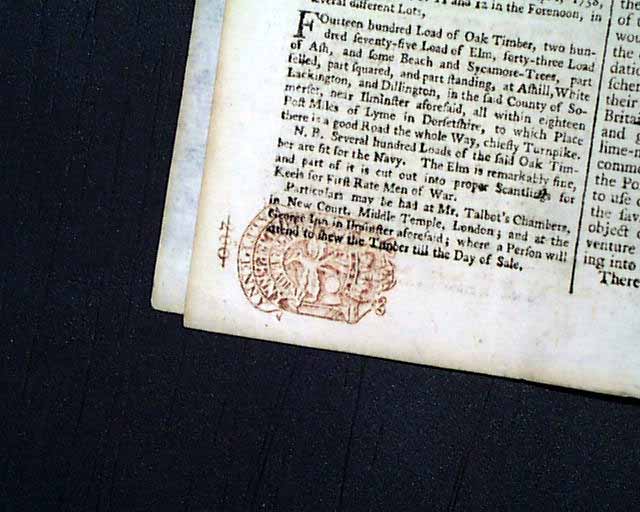 several different Lots,
FOurteen hundred Load of Oak Timber, two hun-
dred seventy-five Load of Elm, forty-three Load
of Ash, and some Beach and Sycamore-Trees, part
felled, part squared, and part standing, at Ashill, White
Lackington, and Dillington, in the said County of So-
merset, near Ilminster aforesaid, all within eighteen
Post Miles of Lyme in Dorsetshire, to which Place
there is a good Road the whole Way, chiefly Turnpike.
N. B. Several hundred Loads of the said Oak Tim-
ber are fit for the Navy. The Elm is remarkably fine,
and part of it is cut out into proper Scantlings for
Keels for First Rate Men of War.
Particulars may be had at Mr. Talbot's Chambers,
in New Court, Middle Temple, London; and at the
George Inn in Ilminster aforesaid; where a Person will
attend to shew the Timber till the Day of Sale.
the
of
wou
the
dati
sche
their
Britai
and g
lime-
comm
the Po
to use
the fav
object
venture
ing into
There